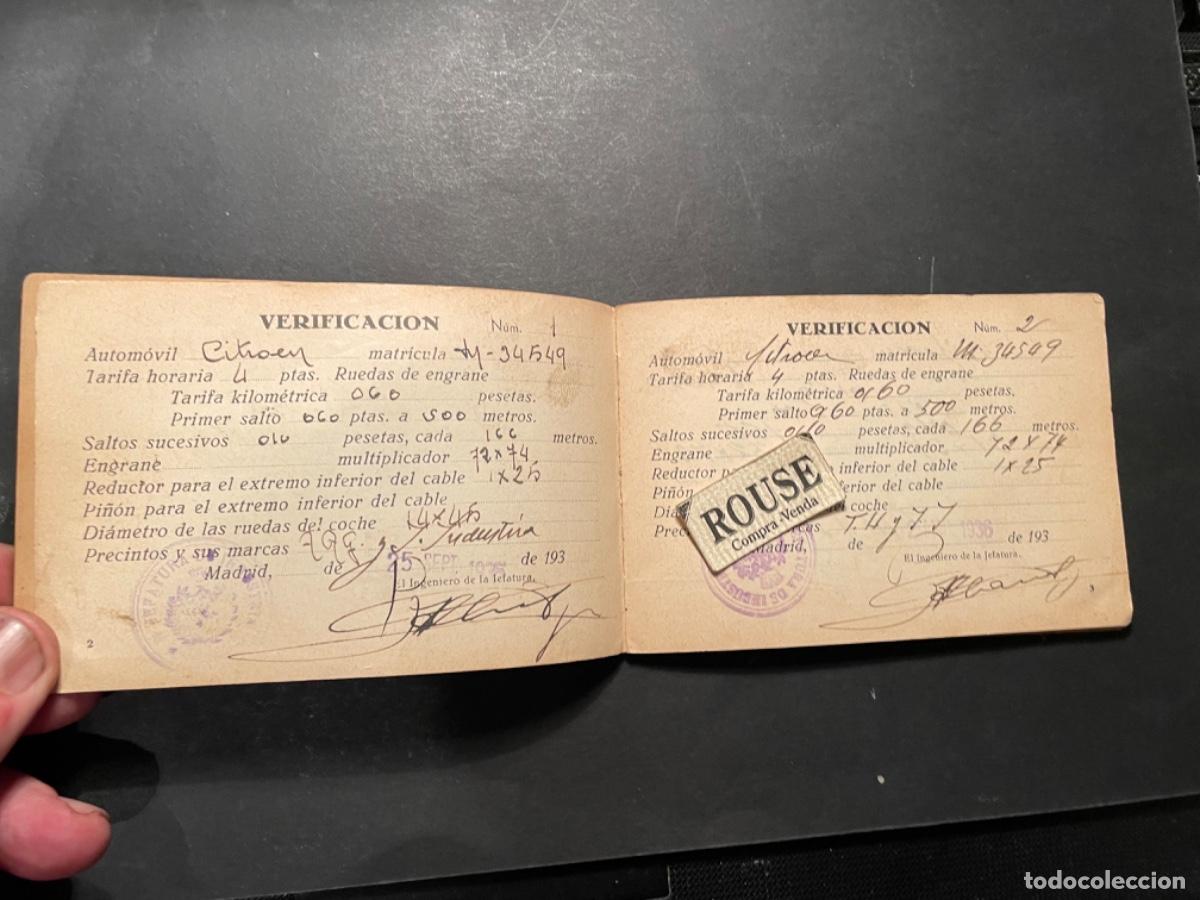 VERIFICACION Núm. 1
Automóvil Citroen matrícula M-34549
Tarifa horaria 4 ptas. Ruedas de engrane
Tarifa kilométrica 060 pesetas.
Primer salto 060 ptas. a 500 metros.
Saltos sucesivos 010 pesetas, cada 166 metros.
Engrane multiplicador 72x74
Reductor para el extremo inferior del cable 1x25
Piñón para el extremo inferior del cable
Diámetro de las ruedas del coche 14x45
Precintos y sus marcas Industria
Madrid, de 25 SEPT. de 193
El Ingeniero de la Jefatura,
2
VERIFICACION Núm. 2
Automóvil Citroen matrícula M-34549
Tarifa horaria 4 ptas. Ruedas de engrane
Tarifa kilométrica 0/60 pesetas.
Primer salto 0,60 ptas. a 500 metros.
Saltos sucesivos 0/10 pesetas, cada 166 metros.
Engrane multiplicador 72x74
Reductor inferior del cable 1x25
Piñón inferior del cable
coche
Madrid, de 1936 de 193
El Ingeniero de la Jefatura,
3
ROUSE
Compra-Venda
todocoleccion